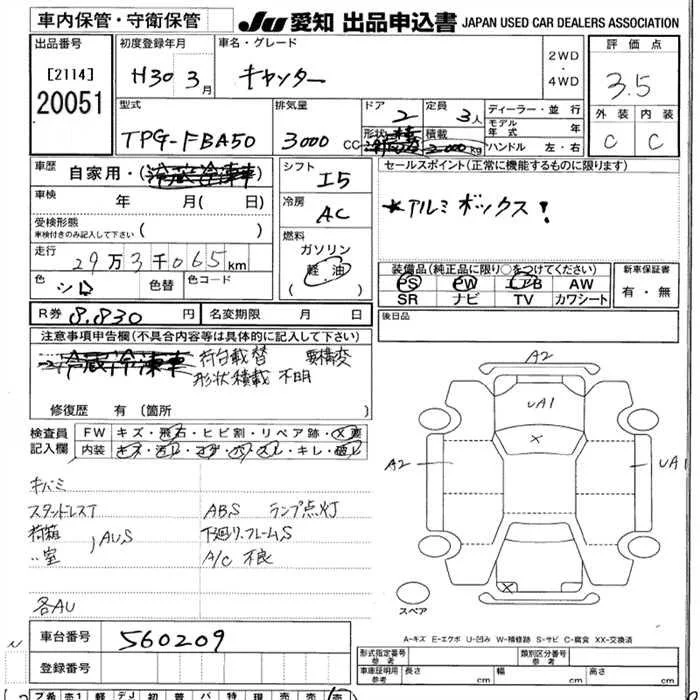 車内保管・守衛保管
JU 愛知 出品申込書 JAPAN USED CAR DEALERS ASSOCIATION
出品番号
[2114]
20051
初度登録年月
H30 3月
車名・グレード
キャンター
2WD
・
4WD
評価点
3.5
外装 内装
C C
型式
TPG-FBA50
排気量
3000 CC
ドア
2
定員
3人
形状
積載
2000 kg
ディーラー・並行
モデル年式 年
ハンドル 左・右
車歴
自家用・(冷蔵冷凍車)
車検
年 月( 日)
受検形態
車検付きのみ記入して下さい ( )
走行
29万3千065km
色
シロ
色替
色コード
シフト
I5
冷房
AC
燃料
ガソリン
軽油
( )
セールスポイント(正常に機能するものに限ります)
*アルミボックス!
装備品(純正品に限り○をつけてください)
PS PW エアB AW
SR ナビ TV カワシート
新車保証書
有・無
R券 8.830 円
名変期限 月 日
後日品
注意事項申告欄(不具合内容等は具体的に記入して下さい)
冷蔵冷凍車 荷台載替 要構変
形状積載 不明
修復歴 有(箇所 )
検査員記入欄
FW キズ・飛石・ヒビ割・リペア跡・X要
内装 キズ・汚レ・コゲ・ハズレ・キレ・破レ
キバミ
スタッドレスT
荷箱
〃室 , AU,S
各AU
ABS ランプ点灯
下廻リ.フレームS
A/C 不良
A2
UA1
X
A2
UA1
X
スペア
A-キズ E-エクボ U-凹み W-補修跡 S-サビ C-腐食 XX-交換済
車台番号 560209
登録番号
形式指定番号 参考
類別区分番号 参考
車庫証明用 参考 長さ cm 幅 cm 高さ cm